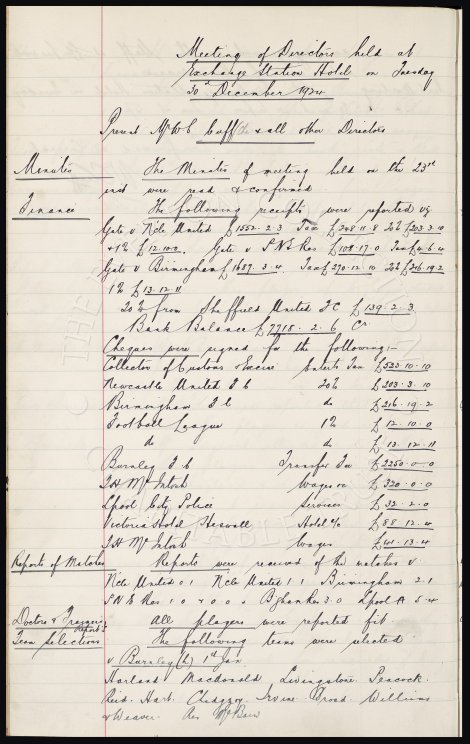 Meeting of Directors held at
Exchange Station Hotel on Tuesday
30th December 1924
Present Mr W C Cuff & all other Directors
Minutes The Minutes of meeting held on the 23rd
inst were read & confirmed
Finance The following receipts were reported viz
Gate v N'cle United £1552.2.3 Tax £348.11.8 20% £203.3.10
& 1% £12.10.0 Gate v S.N.E. Res £108.17.0 Tax £4.6.4
Gate v Birmingham £1687.3.4 Tax £270.12.10 20% £216.19.2
1% £13.12.11
20% from Sheffield United F.C. £139.2.3
Bank Balance £7718.2.6 Cr.
Cheques were signed for the following:-
Collector of Customs & Excise Entert. Tax £523.10.10
Newcastle United F.C. 20% £203.3.10
Birmingham F.C. do £216.19.2
Football League 1% £12.10.0
do do £13.12.11
Burnley F.C. Transfer Fee £2250.0.0
T.H. McIntosh Wages &c £320.0.0
L'pool City Police Services £32.2.0
Victoria Hotel Heswall Hotel a/c £88.12.4
T.H. McIntosh Wages £41.13.4
Reports of Matches Reports were received of the matches v.
N'cle United 0.1 N'cle United 1.1 Birmingham 2.1
S.N.E. Res 1.0 & 0.0 B'ham Res 3.0 L'pool A 5.4
Doctors & Trainers Reports All players were reported fit
Team Selections The following teams were selected
v Burnley (h) 1st Jan.
Harland Macdonald Livingstone Peacock
Reid Hart Chedgzoy Irvine Broad Williams
& Weaver Res McBain